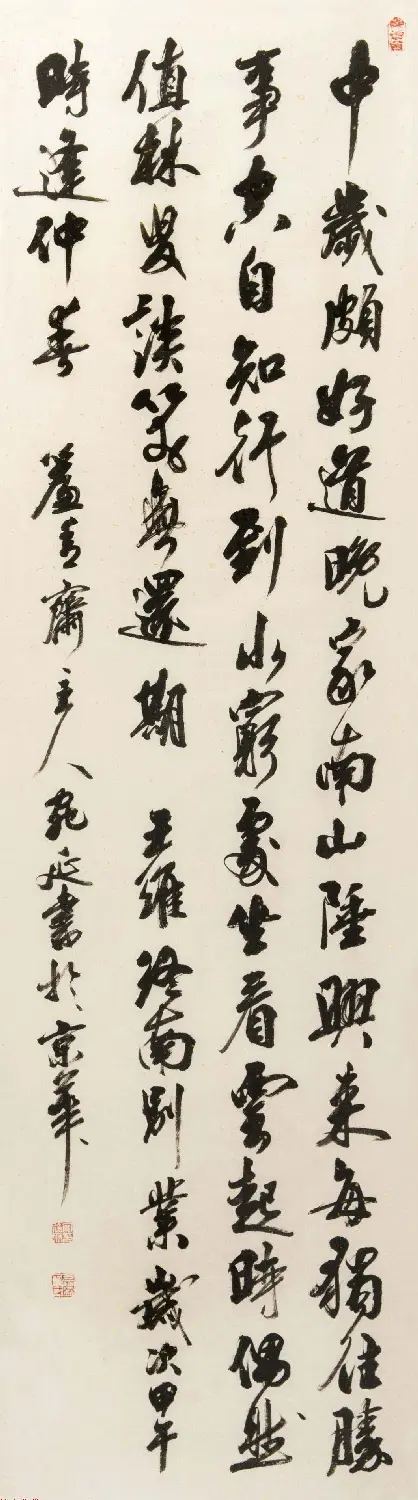 中歲頗好道晚家南山陲興來每獨往勝
事空自知行到水窮處坐看雲起時偶然
值林叟談笑無還期 王維終南別業 歲次甲午
時逢仲春 青齋主人 延書於京華